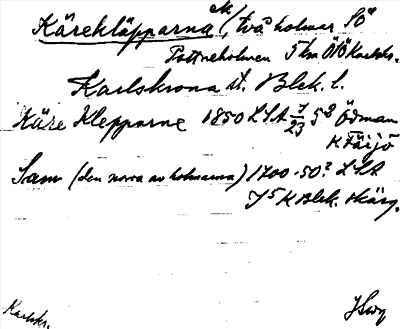 Kärekläpparna ek/, två holmar SÖ
Tattneholmen 5 km ÖSÖ Karlskr.
Karlskrona st. Blek. l.
Käre Klepparne 1850 LSA 7/23 5² Ödman
K Färjö
Sam (den norra av holmarna) 1700-50? LSA
J 5 K Blek. skärg.
Karlskr.